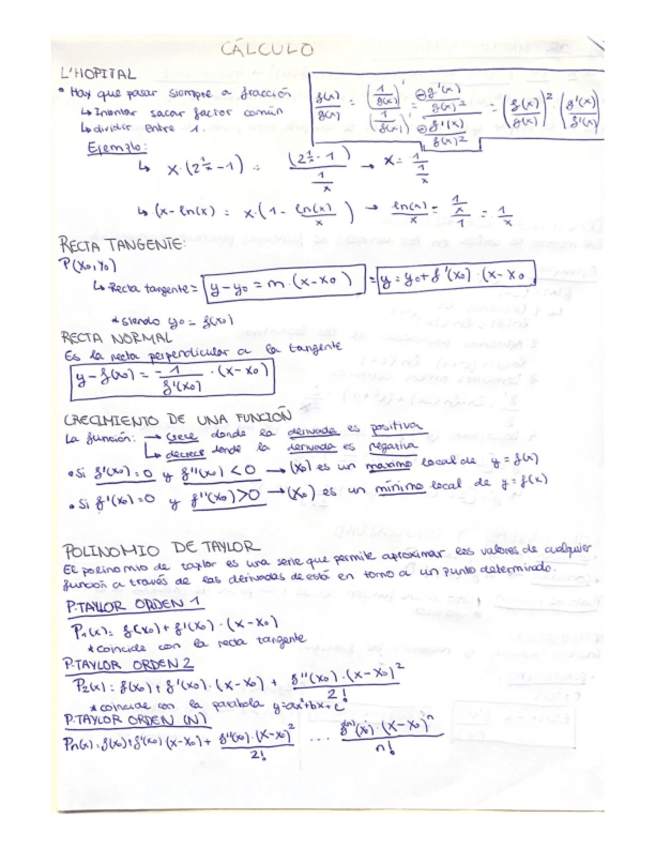 CÁLCULO
L'HOPITAL
• Hay que pasar siempre a fracción
↳ Intentar sacar factor común
↳ dividir entre 1.
f(x)/g(x) = (1/g(x))'/(1/f(x))' = (⊖g'(x)/g(x)²)/(⊖f'(x)/f(x)²) = (f(x)/g(x))² (g'(x)/f'(x))
Ejemplo:
↳ x·(2^(1/x) - 1) = (2^(1/x)·1)/(1/x) → x = 1/(1/x)
↳ (x - ln(x) = x·(1 - ln(x)/x) → ln(x)/x = (1/x)/1 = 1/x
RECTA TANGENTE:
P(x₀, y₀)
↳ Recta tangente = y - y₀ = m·(x - x₀) = y = y₀ + f'(x₀)·(x - x₀
* siendo y₀ = f(x₀)
RECTA NORMAL
Es la recta perpendicular a la tangente
y - f(x₀) = -1/f'(x₀) · (x - x₀)
CRECIMIENTO DE UNA FUNCIÓN
La función: → crece donde la derivada es positiva
↳ decrece donde la derivada es negativa
• Si f'(x₀) = 0 y f''(x₀) < 0 → (x₀) es un maximo local de y = f(x)
• Si f'(x₀) = 0 y f''(x₀) > 0 → (x₀) es un mínimo local de y = f(x)
POLINOMIO DE TAYLOR
El polinomio de taylor es una serie que permite aproximar los valores de cualquier
función a través de las derivadas de está en torno a un punto determinado.
P.TAYLOR ORDEN 1
P₁(x) = f(x₀) + f'(x₀)·(x - x₀)
* coincide con la recta tangente
P.TAYLOR ORDEN 2
P₂(x) = f(x₀) + f'(x₀)·(x - x₀) + f''(x₀)·(x - x₀)²/2!
* coincide con la parabola y = ax² + bx + c
P.TAYLOR ORDEN (N)
Pn(x) = f(x₀) + f'(x₀)(x - x₀) + f''(x₀)·(x - x₀)²/2! ... fⁿ⁾(x)·(x - x₀)ⁿ/n!